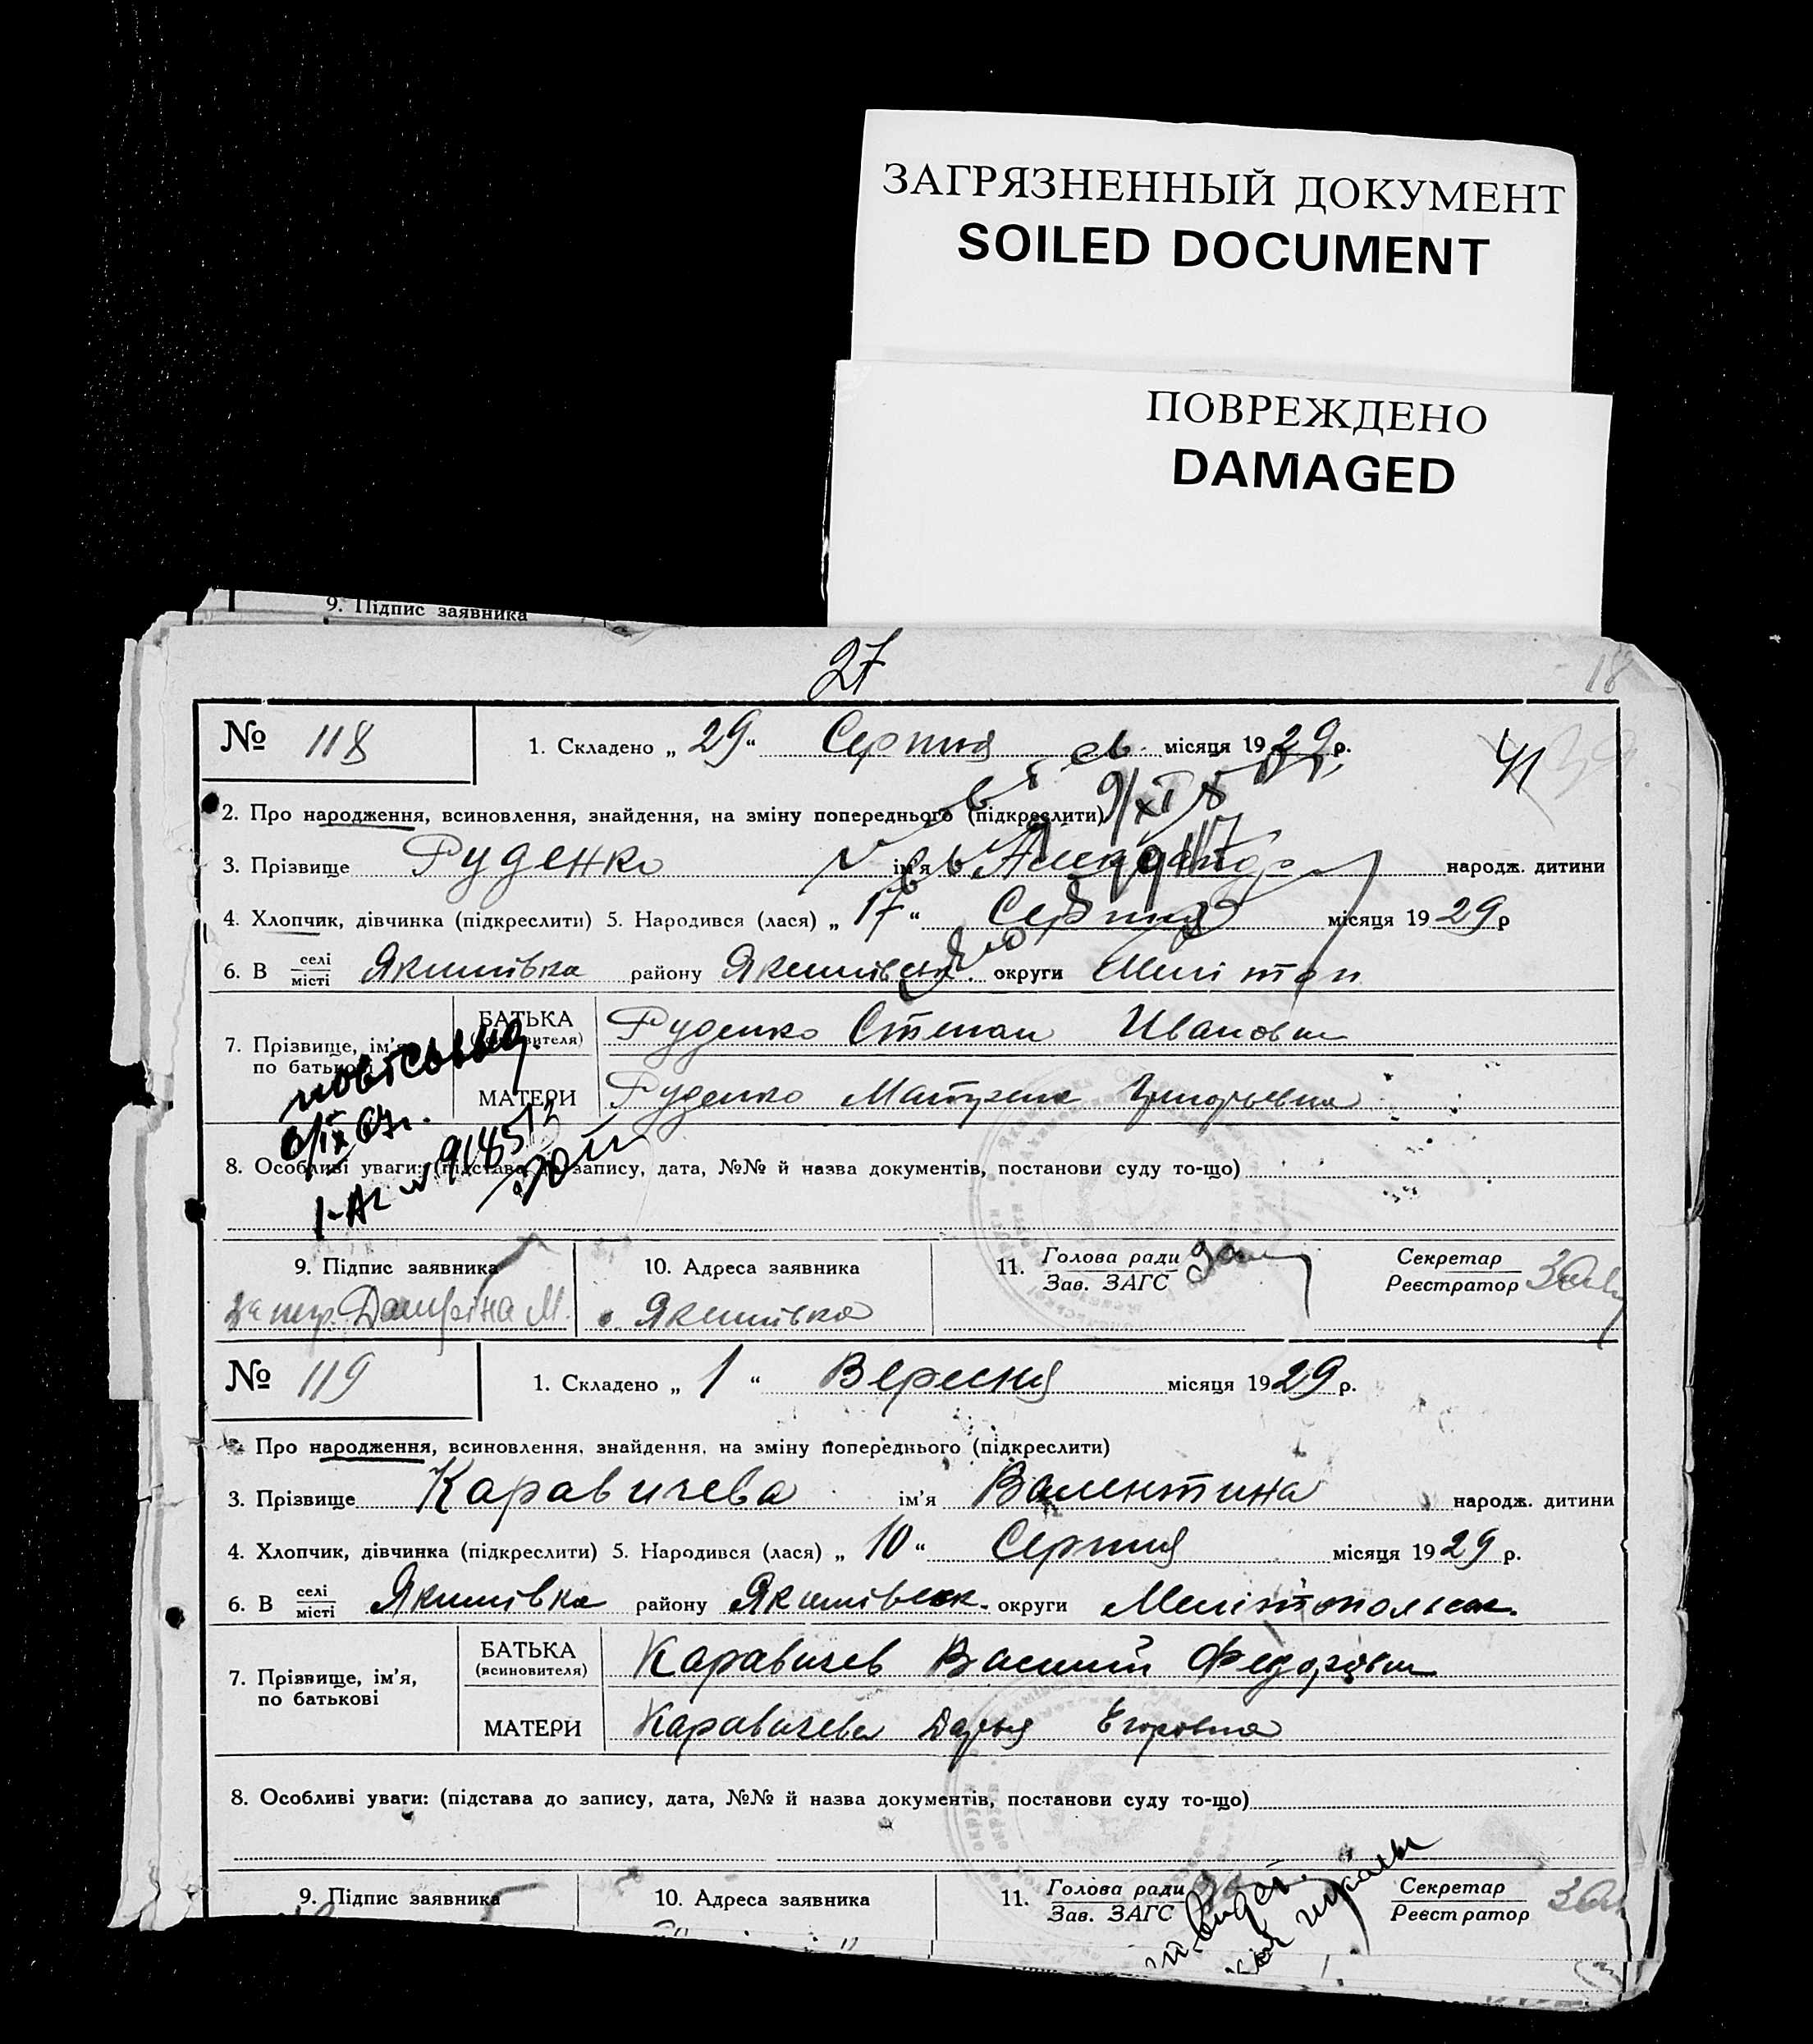 ЗАГРЯЗНЕННЫЙ ДОКУМЕНТ
SOILED DOCUMENT
ПОВРЕЖДЕНО
DAMAGED
9. Підпис заявника
27
18
№ 118
1. Складено „ 29 “ Серпня місяця 1929 р.
41
2. Про народження, всиновлення, знайдення, на зміну попереднього (підкреслити)
3. Прізвище Руденко ім'я Александр народж. дитини
4. Хлопчик, дівчинка (підкреслити) 5. Народився (лася) „ 17 “ Серпня місяця 1929 р
6. В селі місті Якимівка району Якимівськ. округи Меліто п
7. Прізвище, ім'я, по батькові
БАТЬКА (всиновителя) Руденко Степан Иванович
МАТЕРИ Руденко Григорьевна
8. Особливі уваги: (підстава до запису, дата, №№ й назва документів, постанови суду то-що)
9. Підпис заявника
10. Адреса заявника
11. Голова ради
Зав. ЗАГС
Секретар
Реєстратор
с. Якимівка
№ 119
1. Складено „ 1 “ Вересня місяця 1929 р.
2. Про народження, всиновлення, знайдення, на зміну попереднього (підкреслити)
3. Прізвище Каравичева ім'я Валентина народж. дитини
4. Хлопчик, дівчинка (підкреслити) 5. Народився (лася) „ 10 “ Серпня місяця 1929 р.
6. В селі місті Якимівка району Якимівськ. округи Мелітопольськ.
7. Прізвище, ім'я, по батькові
БАТЬКА (всиновителя) Каравичев Василий Федорович
МАТЕРИ Каравичева Дарья Егоровна
8. Особливі уваги: (підстава до запису, дата, №№ й назва документів, постанови суду то-що)
9. Підпис заявника
10. Адреса заявника
11. Голова ради
Зав. ЗАГС
Секретар
Реєстратор